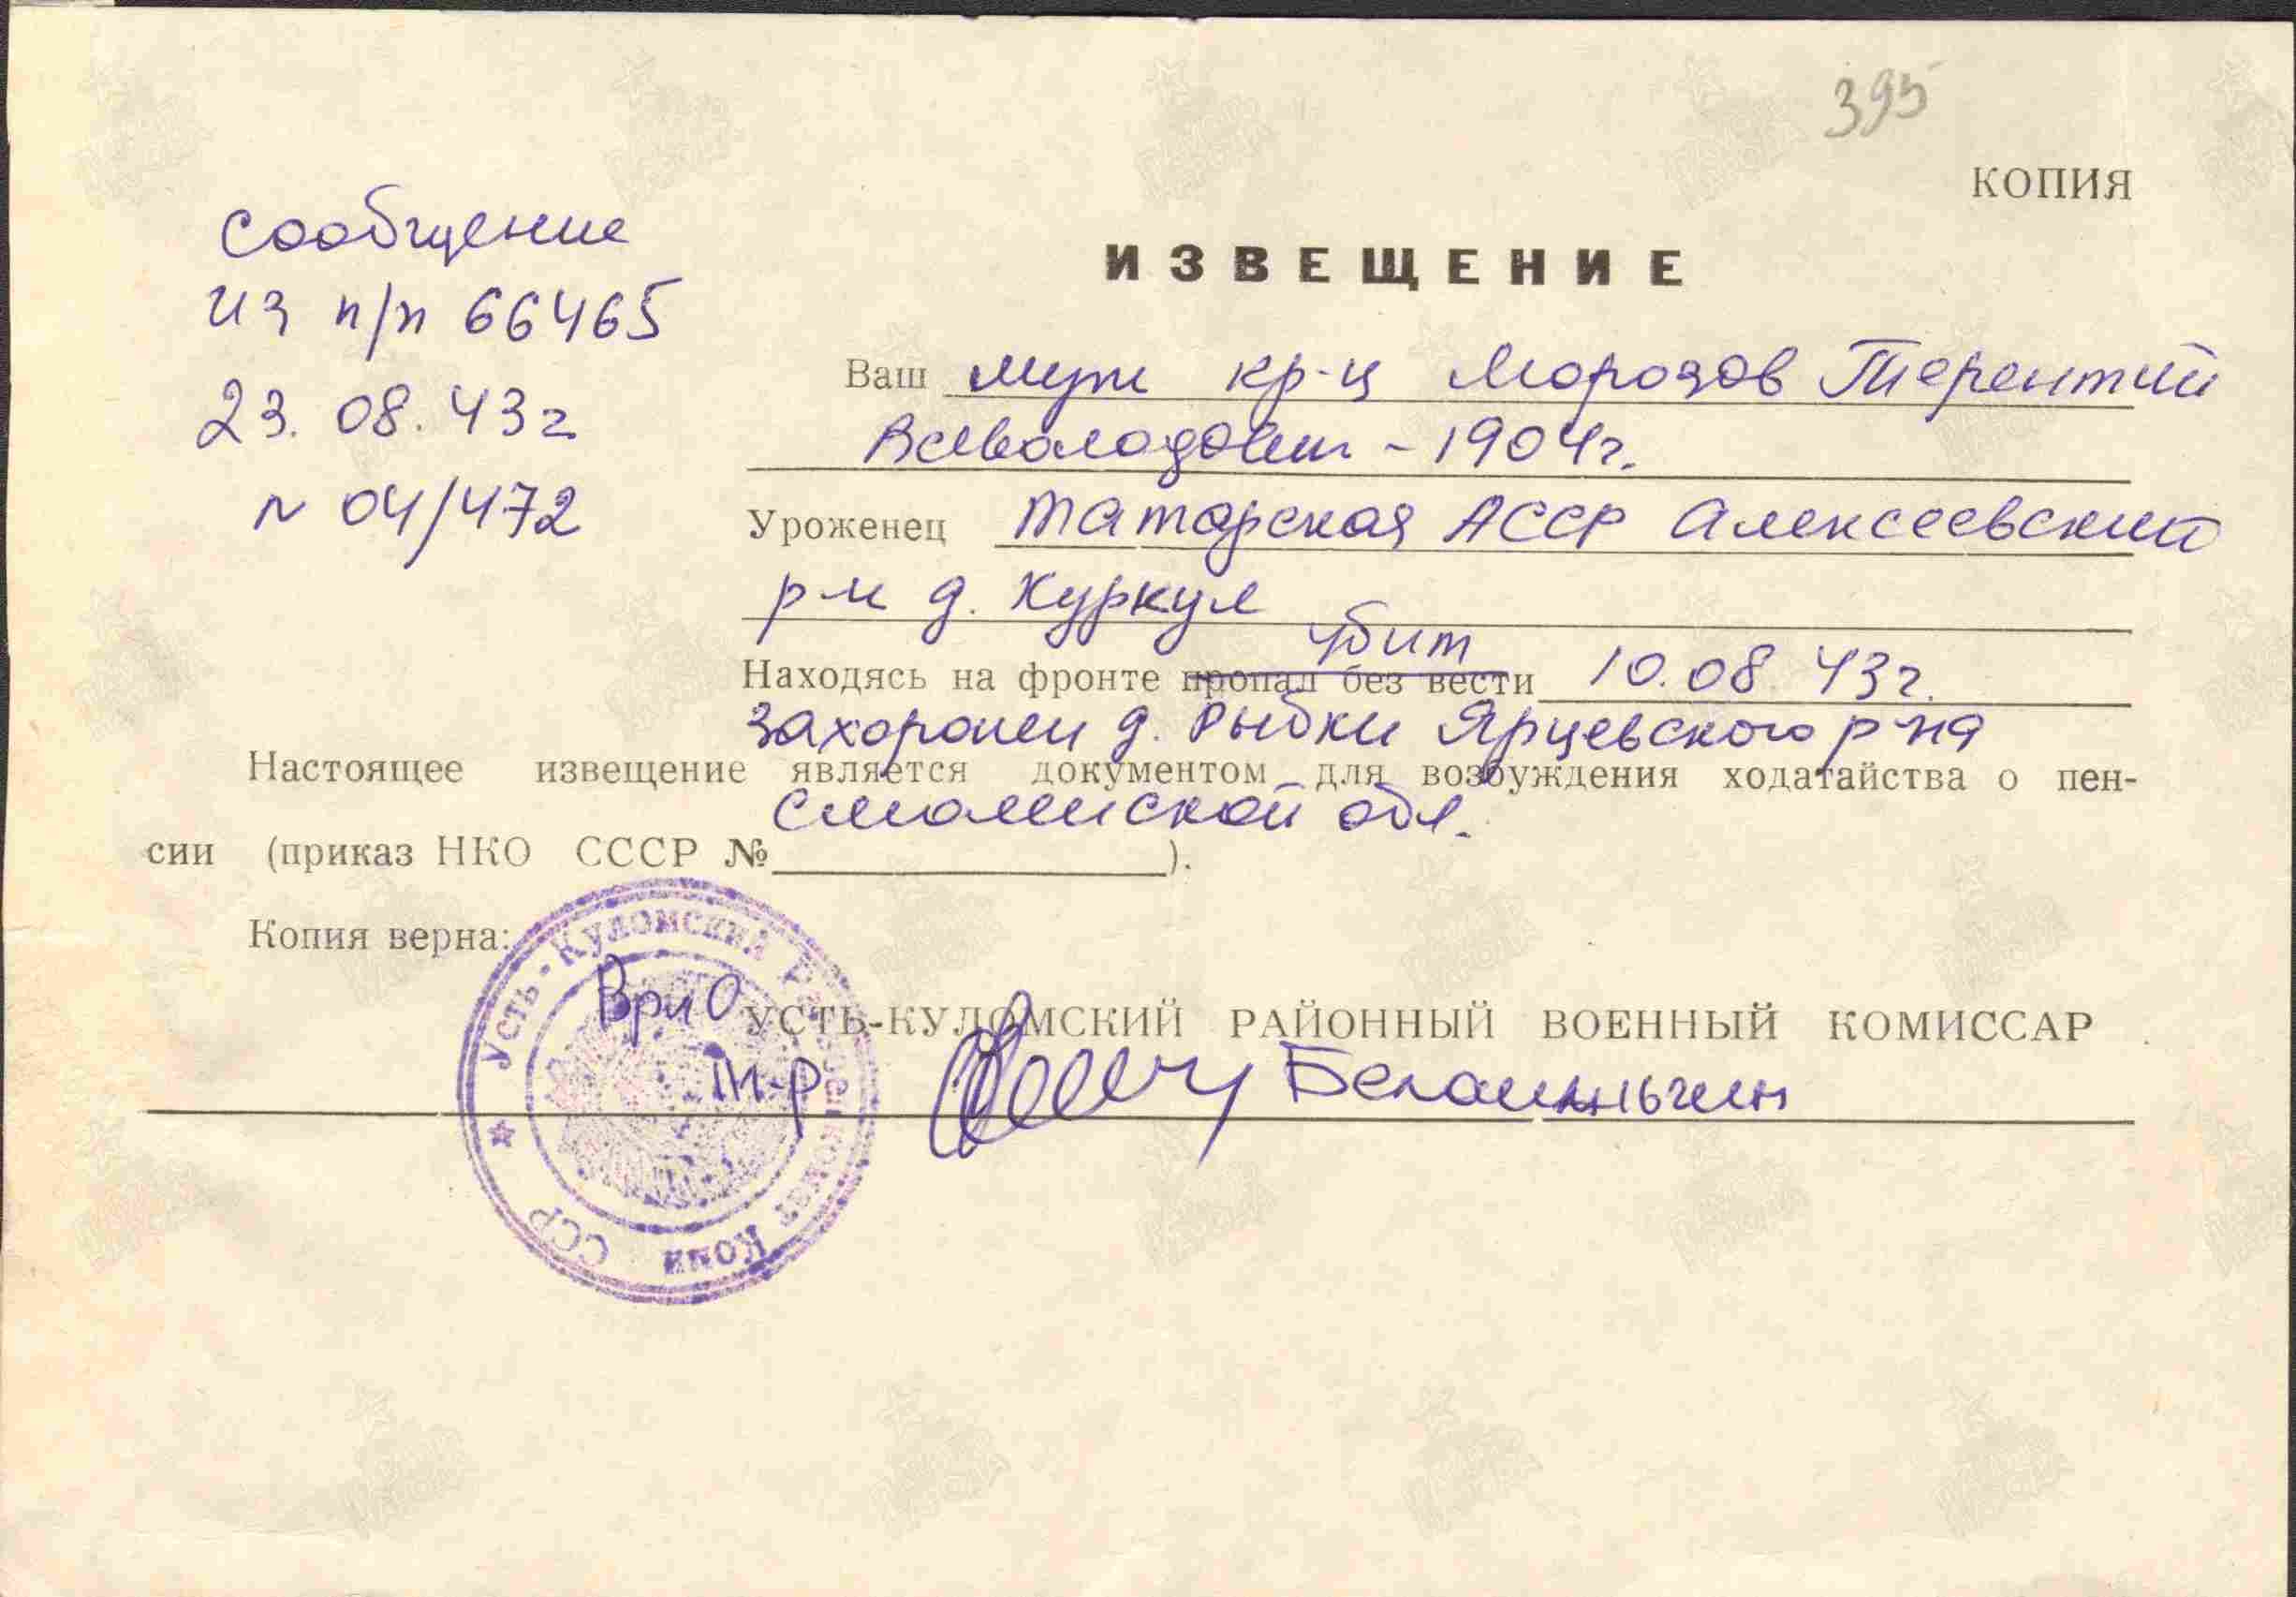 395
КОПИЯ
сообщение
из п/п 66465
23. 08. 43г
N 04/472
ИЗВЕЩЕНИЕ
Ваш муж кр-ц Морозов Терентий
Всеволодович - 1904г.
Уроженец Татарская АССР Алексеевский
р-н д. Куркул
убит
Находясь на фронте пропал без вести 10.08 43г.
захоронен д. Рыбки Ярцевского р-на
Настоящее извещение является документом для возбуждения ходатайства о пен-
Смоленской обл.
сии (приказ НКО СССР № ).
Копия верна:
ВриО
УСТЬ-КУЛОМСКИЙ РАЙОННЫЙ ВОЕННЫЙ КОМИССАР
м-р
Усть-Куломский Райвоенкомат Коми ССР